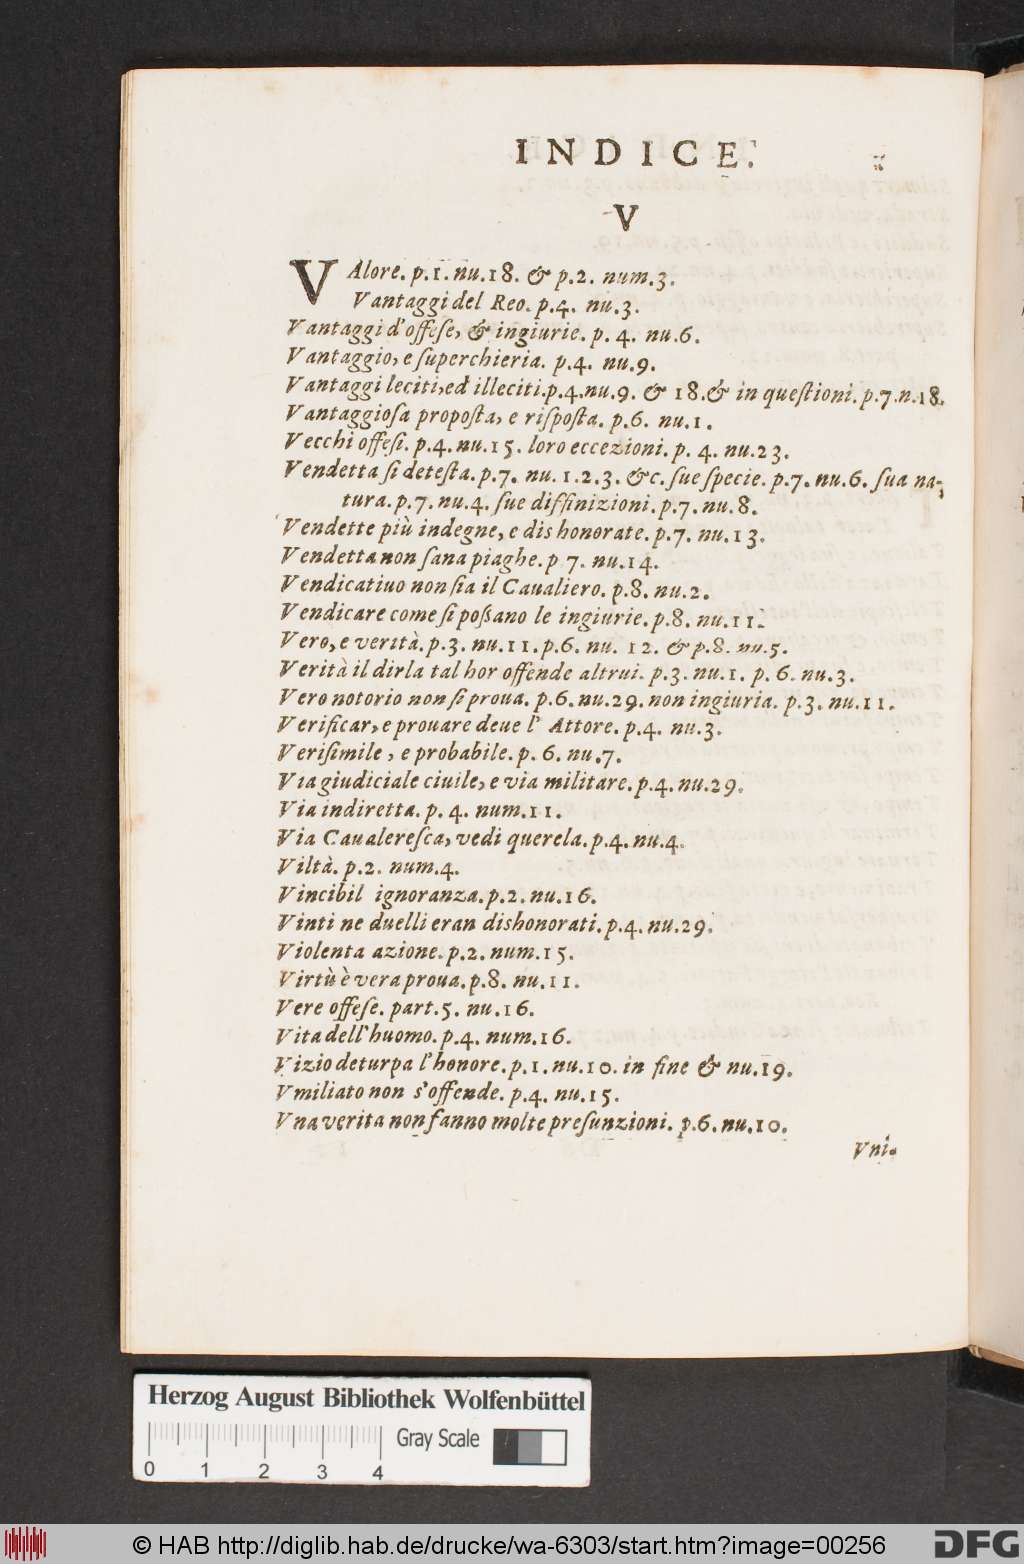 INDICE.
V
VAlore. p.1. nu.18. & p.2. num.3.
Vantaggi del Reo. p.4. nu.3.
Vantaggi d'offeſe, & ingiurie. p. 4. nu.6.
Vantaggio, e ſuperchieria. p.4. nu.9.
Vantaggi leciti, ed illeciti. p.4. nu.9. & 18. & in queſtioni. p.7. n.18.
Vantaggioſa propoſta, e riſpoſta. p.6. nu.1.
Vecchi offeſi. p.4. nu.15. loro eccezioni. p. 4. nu.23.
Vendetta ſi deteſta. p.7. nu. 1.2.3. &c. ſue ſpecie. p.7. nu.6. ſua na-
tura. p.7. nu.4. ſue diffinizioni. p.7. nu.8.
Vendette più indegne, e dishonorate. p.7. nu.13.
Vendetta non ſana piaghe. p 7. nu.14.
Vendicatiuo non ſia il Caualiero. p.8. nu.2.
Vendicare come ſi poſsano le ingiurie. p.8. nu.11.
Vero, e verità. p.3. nu.11. p.6. nu. 12. & p.8. nu.5.
Verità il dirla tal hor offende altrui. p.3. nu.1. p. 6. nu.3.
Vero notorio non ſi proua. p.6. nu.29. non ingiuria. p.3. nu.11.
Verificar, e prouare deue l' Attore. p.4. nu.3.
Veriſimile, e probabile. p. 6. nu.7.
Via giudiciale ciuile, e via militare. p.4. nu.29.
Via indiretta. p. 4. num.11.
Via Caualereſca, vedi querela. p.4. nu.4.
Viltà. p.2. num.4.
Vincibil ignoranza. p.2. nu.16.
Vinti ne duelli eran dishonorati. p.4. nu.29.
Violenta azione. p.2. num.15.
Virtù è vera proua. p.8. nu.11.
Vere offeſe. part.5. nu.16.
Vita dell'huomo. p.4. num.16.
Vizio deturpa l'honore. p.1. nu.10. in fine & nu.19.
Vmiliato non s'offende. p.4. nu.15.
Vna verita non fanno molte preſunzioni. p.6. nu.10.
Vni.
Herzog August Bibliothek Wolfenbüttel
Gray Scale
0 1 2 3 4
© HAB http://diglib.hab.de/drucke/wa-6303/start.htm?image=00256
DFG